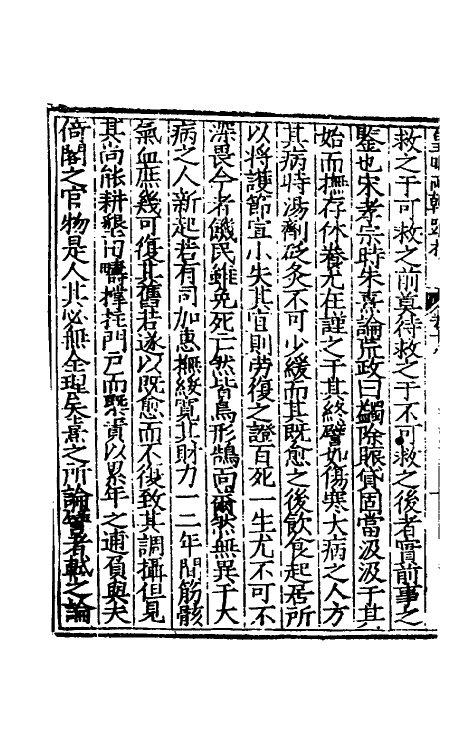 皇明兩朝疏抄
救之于可救之前莫待救之于不可救之後者實前事之
鑒也宋孝宗時朱熹論荒政曰蠲除賑貸固當汲汲于其
始而撫存休養尤在謹之于其終譬如傷寒大病之人方
其病時湯劑砭灸不可少緩而其既愈之後飲食起居所
以將護節宣小失其宜則勞復之證百死一生尤不可不
深畏今者饑民雖免死亡然皆鳥形鵠面爾然無異于大
病之人新起若有司加惠撫綏寛其財力一二年間筋骸
氣血庶幾可復其舊若遂以既愈而不復致其調攝但見
其尚能耕墾田疇撑拄門戸而槩責以累年之逋負與夫
倚閣之官物是人其必無全理矣熹之所論譬者軾之論